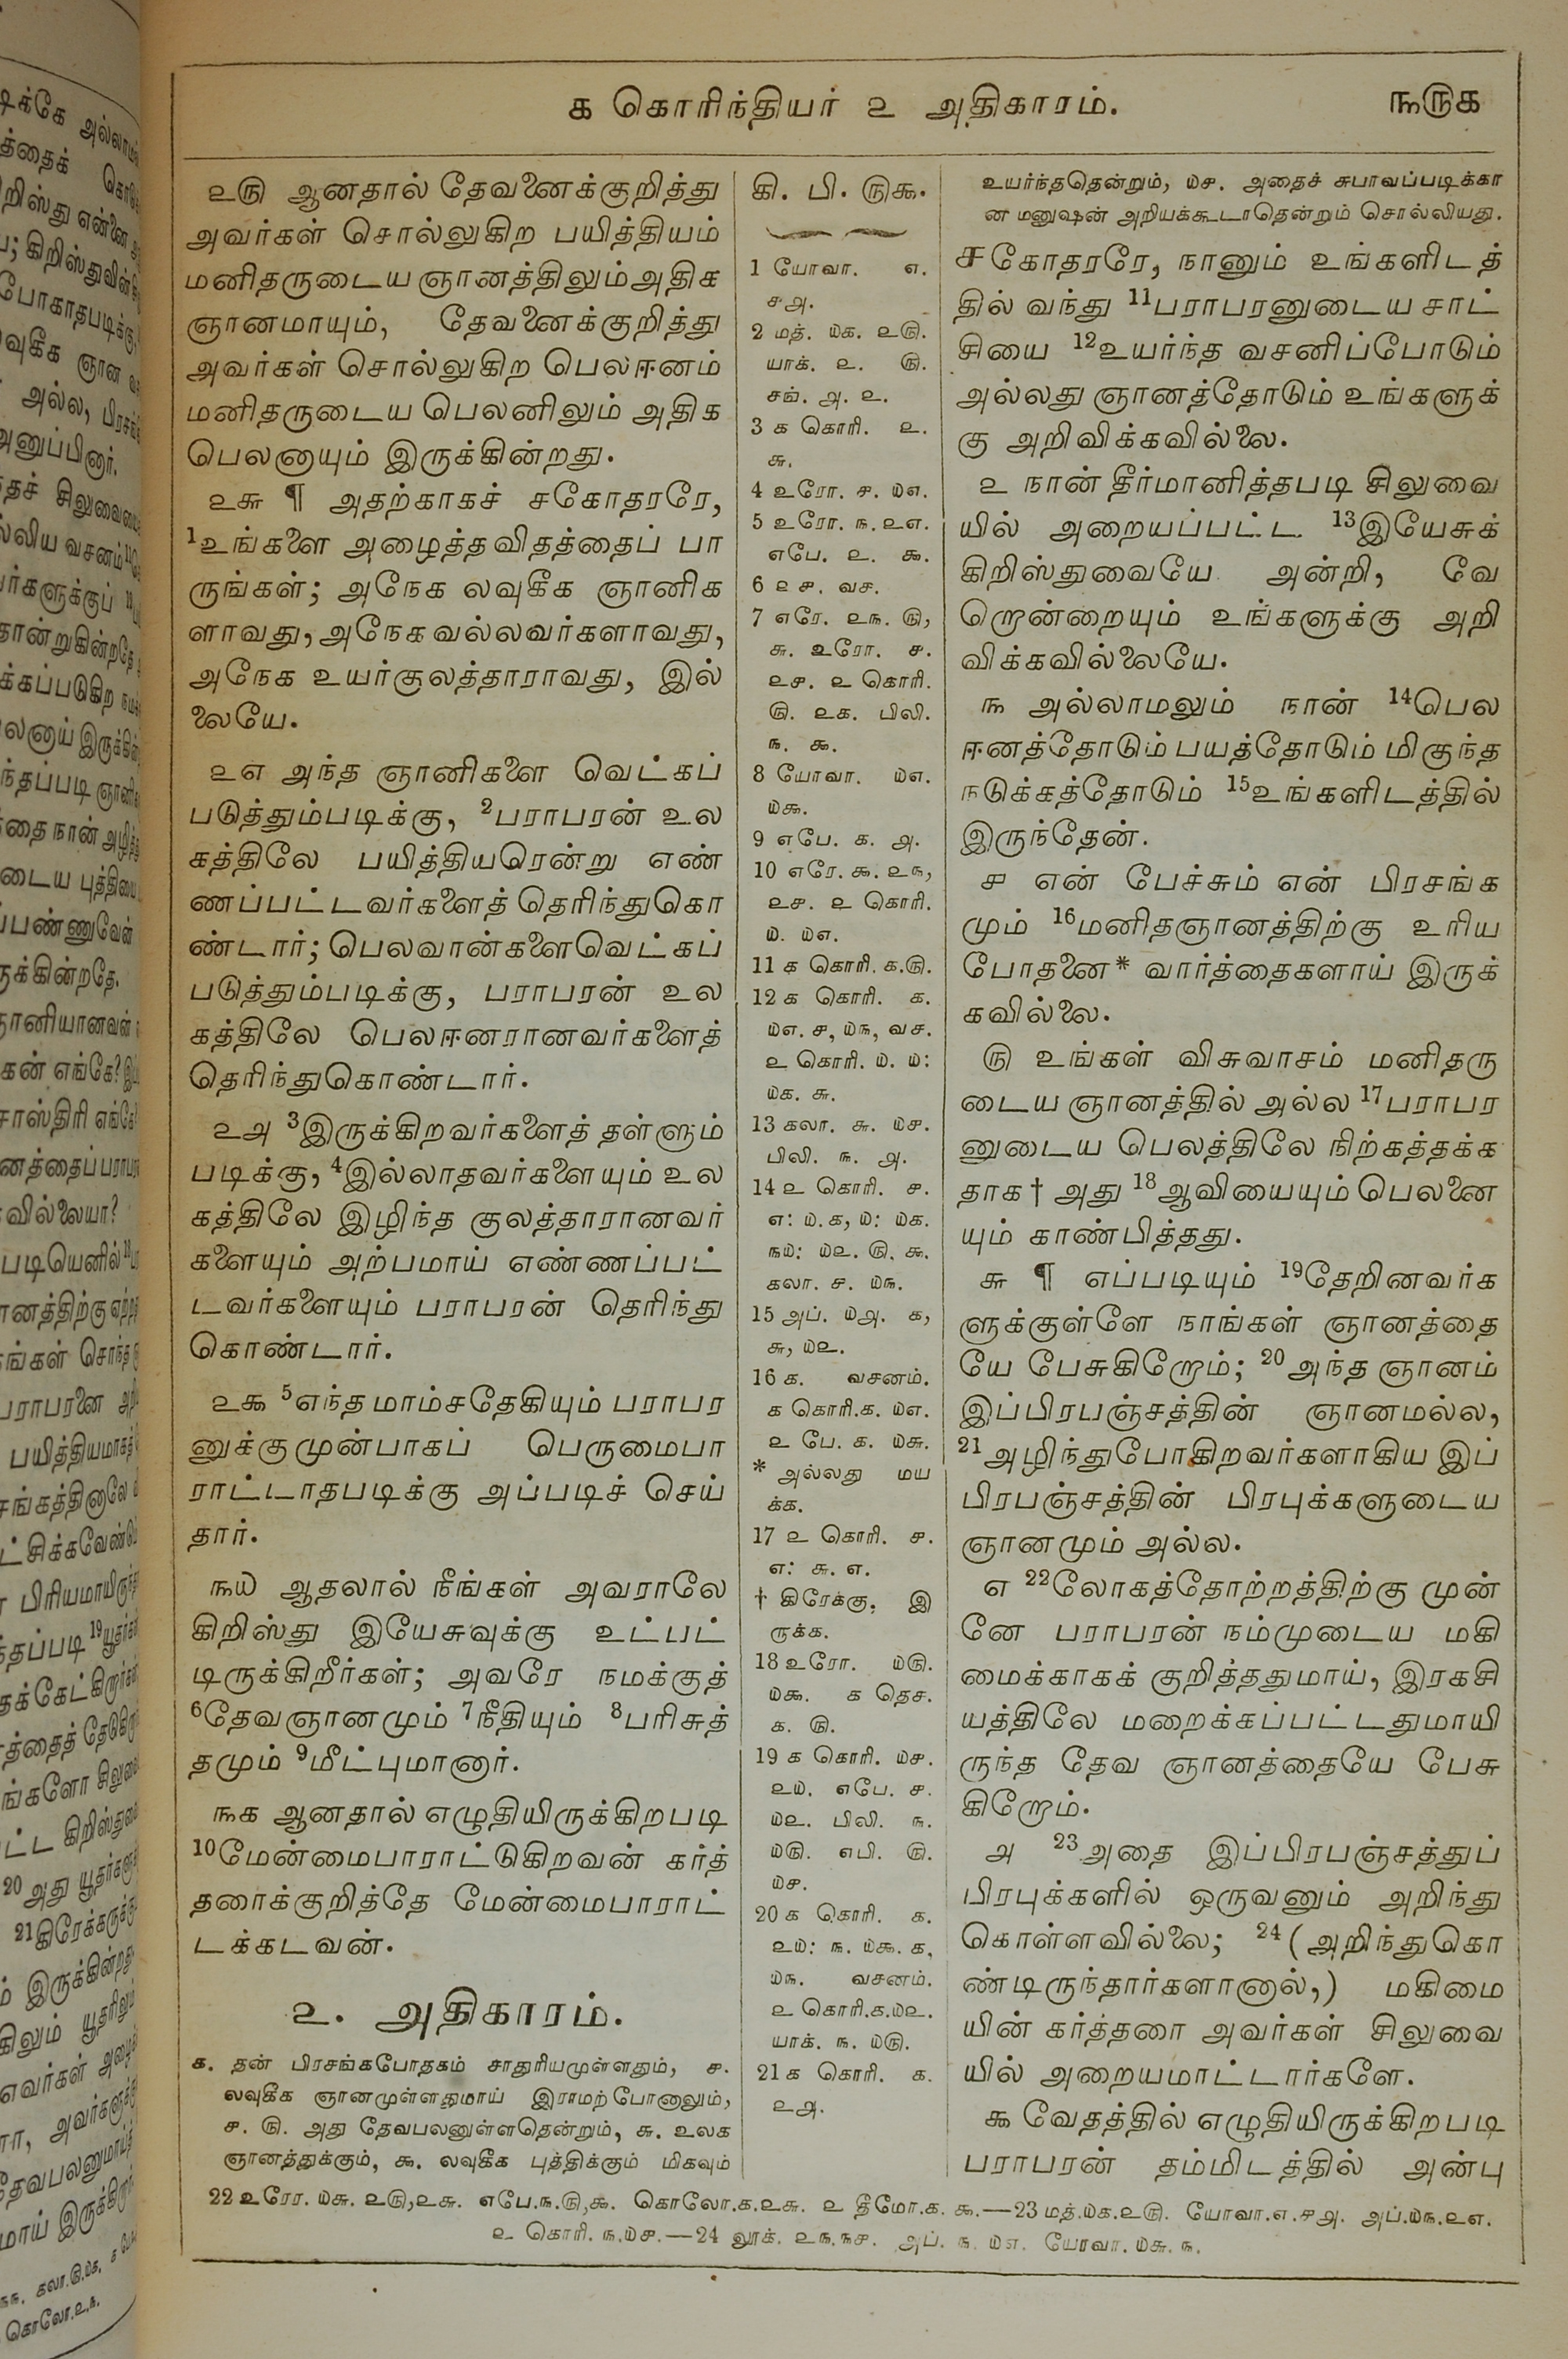 ௧ கொரிந்தியர் ௨ அதிகாரம்.
௩௫௧
௨௫ ஆனதால் தேவனைக்குறித்து
அவர்கள் சொல்லுகிற பயித்தியம்
மனிதருடைய ஞானத்திலும் அதிக
ஞானமாயும், தேவனைக்குறித்து
அவர்கள் சொல்லுகிற பெலஈனம்
மனிதருடைய பெலனிலும் அதிக
பெலனாயும் இருக்கின்றது.
௨௬ ¶ அதற்காகச் சகோதரரே,
1உங்களை அழைத்தவிதத்தைப் பா
ருங்கள்; அநேக லவுகீக ஞானிக
ளாவது, அநேக வல்லவர்களாவது,
அநேக உயர்குலத்தாராவது, இல்
லையே.
௨௭ அந்த ஞானிகளை வெட்கப்
படுத்தும்படிக்கு, 2பராபரன் உல
கத்திலே பயித்தியரென்று எண்
ணப்பட்டவர்களைத் தெரிந்துகொ
ண்டார்; பெலவான்களைவெட்கப்
படுத்தும்படிக்கு, பராபரன் உல
கத்திலே பெலஈனரானவர்களைத்
தெரிந்துகொண்டார்.
௨௮ 3இருக்கிறவர்களைத் தள்ளும்
படிக்கு, 4இல்லாதவர்களையும் உல
கத்திலே இழிந்த குலத்தாரானவர்
களையும் அற்பமாய் எண்ணப்பட்
டவர்களையும் பராபரன் தெரிந்து
கொண்டார்.
௨௯ 5எந்த மாம்சதேகியும் பராபர
னுக்குமுன்பாகப் பெருமைபா
ராட்டாதபடிக்கு அப்படிச் செய்
தார்.
௩௰ ஆதலால் நீங்கள் அவராலே
கிறிஸ்து இயேசுவுக்கு உட்பட்
டிருக்கிறீர்கள்; அவரே நமக்குத்
6தேவஞானமும் 7நீதியும் 8பரிசுத்
தமும் 9மீட்புமானார்.
௩௧ ஆனதால் எழுதியிருக்கிறபடி
10மேன்மைபாராட்டுகிறவன் கர்த்
தரைக்குறித்தே மேன்மைபாராட்
டக்கடவன்.
௨. அதிகாரம்.
௧. தன் பிரசங்கபோதகம் சாதுரியமுள்ளதும், ௪.
லவுகீக ஞானமுள்ளதுமாய் இராமற்போனாலும்,
௪. ௫. அது தேவபலனுள்ளதென்றும், ௬. உலக
ஞானத்துக்கும், ௯. லவுகீக புத்திக்கும் மிகவும்
கி. பி. ௫௯.
1 யோவா. ௭.
௪௮.
2 மத். ௰௧. ௨௫.
யாக். ௨. ௫.
சங். ௮. ௨.
3 ௧ கொரி. ௨.
௬.
4 உரோ. ௪. ௰௭.
5 உரோ. ௩. ௨௭.
எபே. ௨. ௯.
6 ௨௪. வச.
7 எரே. ௨௩. ௫,
௬. உரோ. ௪.
௨௪. ௨ கொரி.
௫. ௨௧. பிலி.
௩. ௯.
8 யோவா. ௰௭.
௰௯.
9 எபே. ௧. ௮.
10 எரே. ௯. ௨௩,
௨௪. ௨ கொரி.
௰. ௰௭.
11 ௧ கொரி. ௧.௫.
12 ௧ கொரி. ௧.
௰௭. ௪, ௰௩, வச.
௨ கொரி. ௰. ௰:
௰௧. ௬.
13 கலா. ௬. ௰௪.
பிலி. ௩. ௮.
14 ௨ கொரி. ௪.
௭: ௰.௧, ௰: ௰௧.
௩௰: ௰௨. ௫. ௯.
கலா. ௪. ௰௩.
15 அப். ௰௮. ௧,
௬, ௰௨.
16 ௧. வசனம்.
௧ கொரி.௧. ௰௭.
௨ பே. ௧. ௰௬.
* அல்லது மய
க்க.
17 ௨ கொரி. ௪.
௭: ௬. ௭.
† கிரேக்கு, இ
ருக்க.
18 உரோ. ௰௫.
௰௯. ௧ தெச.
௧. ௫.
19 ௧ கொரி. ௰௪.
௨௰. எபே. ௪.
௰௨. பிலி. ௩.
௰௫. எபி. ௫.
௰௪.
20 ௧ கொரி. ௧.
௨௰: ௩. ௰௯. ௧,
௰௩. வசனம்.
௨ கொரி.௧.௰௨.
யாக். ௩. ௰௫.
21 ௧ கொரி. ௧.
௨௮.
உயர்ந்ததென்றும், ௰௪. அதைச் சுபாவப்படிக்கா
ன மனுஷன் அறியக்கூடாதென்றும் சொல்லியது.
சகோதரரே, நானும் உங்களிடத்
தில் வந்து 11பராபரனுடைய சாட்
சியை 12உயர்ந்த வசனிப்போடும்
அல்லது ஞானத்தோடும் உங்களுக்
கு அறிவிக்கவில்லை.
௨ நான் தீர்மானித்தபடி சிலுவை
யில் அறையப்பட்ட 13இயேசுக்
கிறிஸ்துவையே அன்றி, வே
றொன்றையும் உங்களுக்கு அறி
விக்கவில்லையே.
௩ அல்லாமலும் நான் 14பெல
ஈனத்தோடும் பயத்தோடும் மிகுந்த
நடுக்கத்தோடும் 15உங்களிடத்தில்
இருந்தேன்.
௪ என் பேச்சும் என் பிரசங்க
மும் 16மனிதஞானத்திற்கு உரிய
போதனை* வார்த்தைகளாய் இருக்
கவில்லை.
௫ உங்கள் விசுவாசம் மனிதரு
டைய ஞானத்தில் அல்ல 17பராபர
னுடைய பெலத்திலே நிற்கத்தக்க
தாக† அது 18ஆவியையும் பெலனை
யும் காண்பித்தது.
௬ ¶ எப்படியும் 19தேறினவர்க
ளுக்குள்ளே நாங்கள் ஞானத்தை
யே பேசுகிறோம்; 20அந்த ஞானம்
இப்பிரபஞ்சத்தின் ஞானமல்ல,
21அழிந்துபோகிறவர்களாகிய இப்
பிரபஞ்சத்தின் பிரபுக்களுடைய
ஞானமும் அல்ல.
௭ 22லோகத்தோற்றத்திற்கு முன்
னே பராபரன் நம்முடைய மகி
மைக்காகக் குறித்ததுமாய், இரகசி
யத்திலே மறைக்கப்பட்டதுமாயி
ருந்த தேவ ஞானத்தையே பேசு
கிறோம்.
௮ 23அதை இப்பிரபஞ்சத்துப்
பிரபுக்களில் ஒருவனும் அறிந்து
கொள்ளவில்லை; 24(அறிந்துகொ
ண்டிருந்தார்களானால்,) மகிமை
யின் கர்த்தரை அவர்கள் சிலுவை
யில் அறையமாட்டார்களே.
௯ வேதத்தில் எழுதியிருக்கிறபடி
பராபரன் தம்மிடத்தில் அன்பு
22 உரோ. ௰௬. ௨௫,௨௬. எபே.௩.௫,௯. கொலோ.௧.௨௬. ௨ தீமோ.௧. ௯.—23 மத்.௰௧.௨௫. யோவா.௭.௪௮. அப்.௰௩.௨௭.
௨ கொரி. ௩.௰௪.—24 லூக். ௨௩.௩௪. அப். ௩. ௰௭. யோவா. ௰௬. ௩.